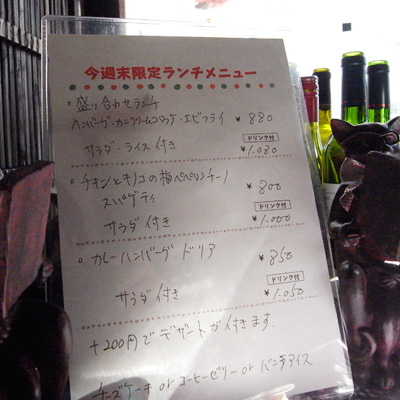 今週末限定ランチメニュー
○盛り合わせランチ
ハンバーグ・カニクリームコロッケ・エビフライ ¥880
サラダ・ライス付き ドリンク付 ¥1.080
○チキンとキノコの梅ペペロンチーノ
スパゲティ ¥800
サラダ付き ドリンク付 ¥1.000
○カレーハンバーグ ドリア ¥850
サラダ付き ドリンク付 ¥1.050
+200円でデザートが付きます.
チーズケーキ or コーヒーゼリー or バニラアイス